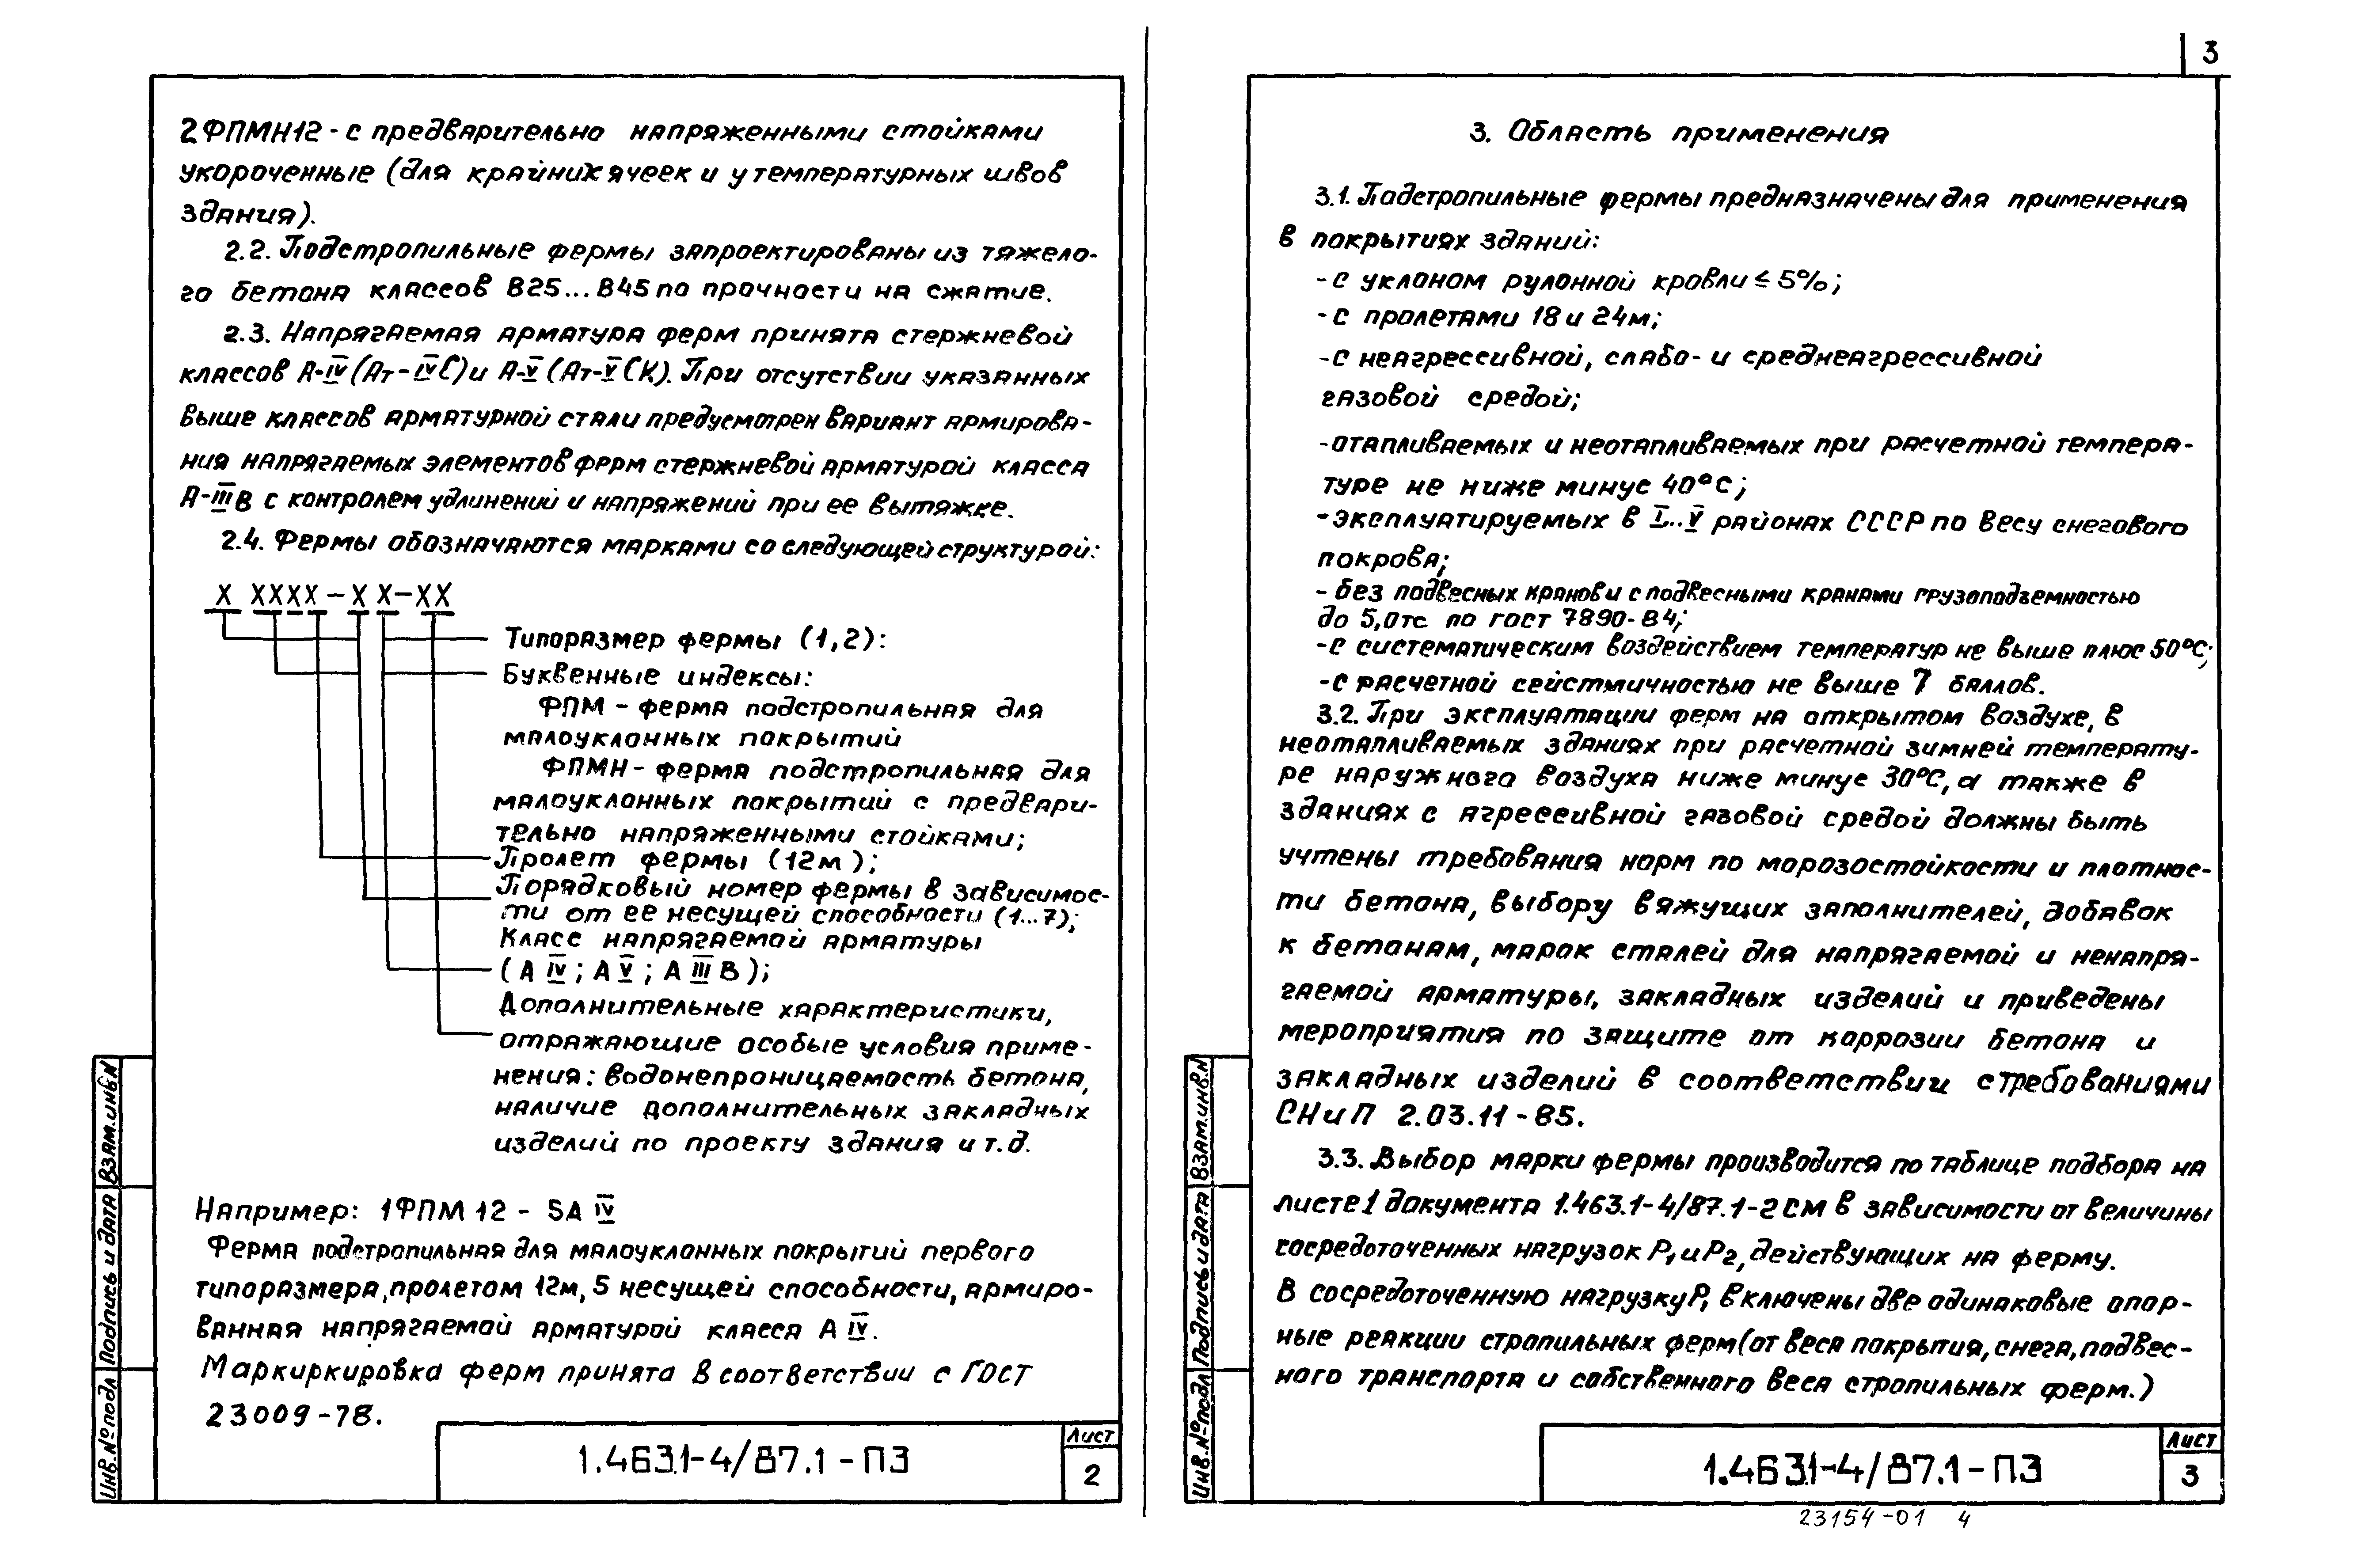 2ФПМН12 - с предварительно напряженными стойками
укороченные (для крайних ячеек и у температурных швов
здания).
2.2. Подстропильные фермы запроектированы из тяжело-
го бетона классов В25...В45 по прочности на сжатие.
2.3. Напрягаемая арматура ферм принята стержневой
классов А-IV (Ат-IVС) и А-V (Ат-VСК). При отсутствии указанных
выше классов арматурной стали предусмотрен вариант армирова-
ния напрягаемых элементов ферм стержневой арматурой класса
А-IIIВ с контролем удлинений и напряжений при ее вытяжке.
2.4. Фермы обозначаются марками со следующей структурой:
X XXXX - X X - XX
Типоразмер фермы (1,2):
Буквенные индексы:
ФПМ - ферма подстропильная для
малоуклонных покрытий
ФПМН - ферма подстропильная для
малоуклонных покрытий с предвари-
тельно напряженными стойками;
Пролет фермы (12м);
Порядковый номер фермы в зависимос-
ти от ее несущей способности (1...7);
Класс напрягаемой арматуры
(А IV; А V; А III В);
Дополнительные характеристики,
отражающие особые условия приме-
нения: водонепроницаемость бетона,
наличие дополнительных закладных
изделий по проекту здания и т.д.
Например: 1ФПМ 12 - 5А IV
Ферма подстропильная для малоуклонных покрытий первого
типоразмера, пролетом 12м, 5 несущей способности, армиро-
ванная напрягаемой арматурой класса А IV.
Маркиркировка ферм принята в соответствии с ГОСТ
23009-78.
Взам.инв.N
Подпись и дата
Инв.№подл
1.463.1-4/87.1-ПЗ
Лист
2
3
3. Область применения
3.1. Подстропильные фермы предназначены для применения
в покрытиях зданий:
- с уклоном рулонной кровли ≤ 5%;
- с пролетами 18 и 24м;
- с неагрессивной, слабо- и среднеагрессивной
газовой средой;
- отапливаемых и неотапливаемых при расчетной темпера-
туре не ниже минус 40°С;
- эксплуатируемых в I...V районах СССР по весу снегового
покрова;
- без подвесных кранов и с подвесными кранами грузоподъемностью
до 5,0тс по ГОСТ 7890-84;
- с систематическим воздействием температур не выше плюс 50°С;
- с расчетной сейстмичностью не выше 7 баллов.
3.2. При эксплуатации ферм на открытом воздухе, в
неотапливаемых зданиях при расчетной зимней температу-
ре наружного воздуха ниже минус 30°С, а также в
зданиях с агрессивной газовой средой должны быть
учтены требования норм по морозостойкости и плотнос-
ти бетона, выбору вяжущих заполнителей, добавок
к бетонам, марок сталей для напрягаемой и ненапря-
гаемой арматуры, закладных изделий и приведены
мероприятия по защите от коррозии бетона и
закладных изделий в соответствии с требованиями
СНиП 2.03.11-85.
3.3. Выбор марки фермы производится по таблице подбора на
листе 1 документа 1.463.1-4/87.1-2СМ в зависимости от величины
сосредоточенных нагрузок Р1 и Р2, действующих на ферму.
В сосредоточенную нагрузку Р1 включены две одинаковые опор-
ные реакции стропильных ферм (от веса покрытия, снега, подвес-
ного транспорта и собственного веса стропильных ферм.)
Взам.инв.N
Подпись и дата
Инв.№подл
1.463.1-4/87.1-ПЗ
Лист
3
23154-01 4